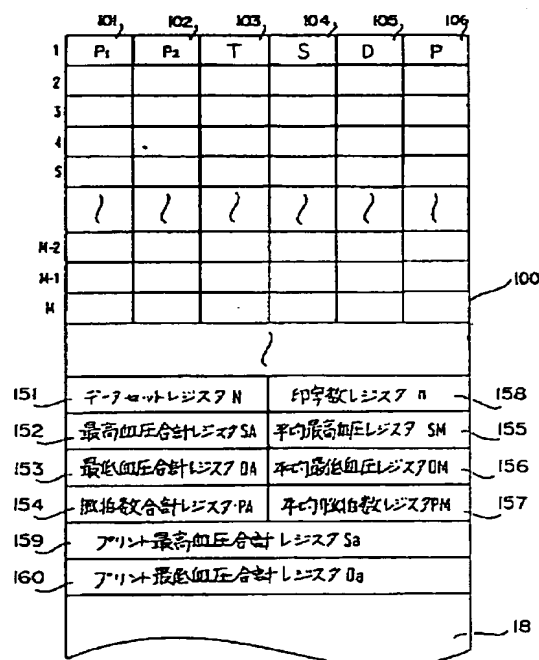 101 102 103 104 105 106
1 P1 P2 T S D P
2
3
4
5
M-2
M-1
M
100
151 データセットレジスタ N 印字数レジスタ n 158
152 最高血圧合計レジスタ SA 平均最高血圧レジスタ SM 155
153 最低血圧合計レジスタ DA 平均最低血圧レジスタ DM 156
154 脈拍数合計レジスタ PA 平均脈拍数レジスタ PM 157
159 プリント最高血圧合計レジスタ Sa
160 プリント最低血圧合計レジスタ Da
18